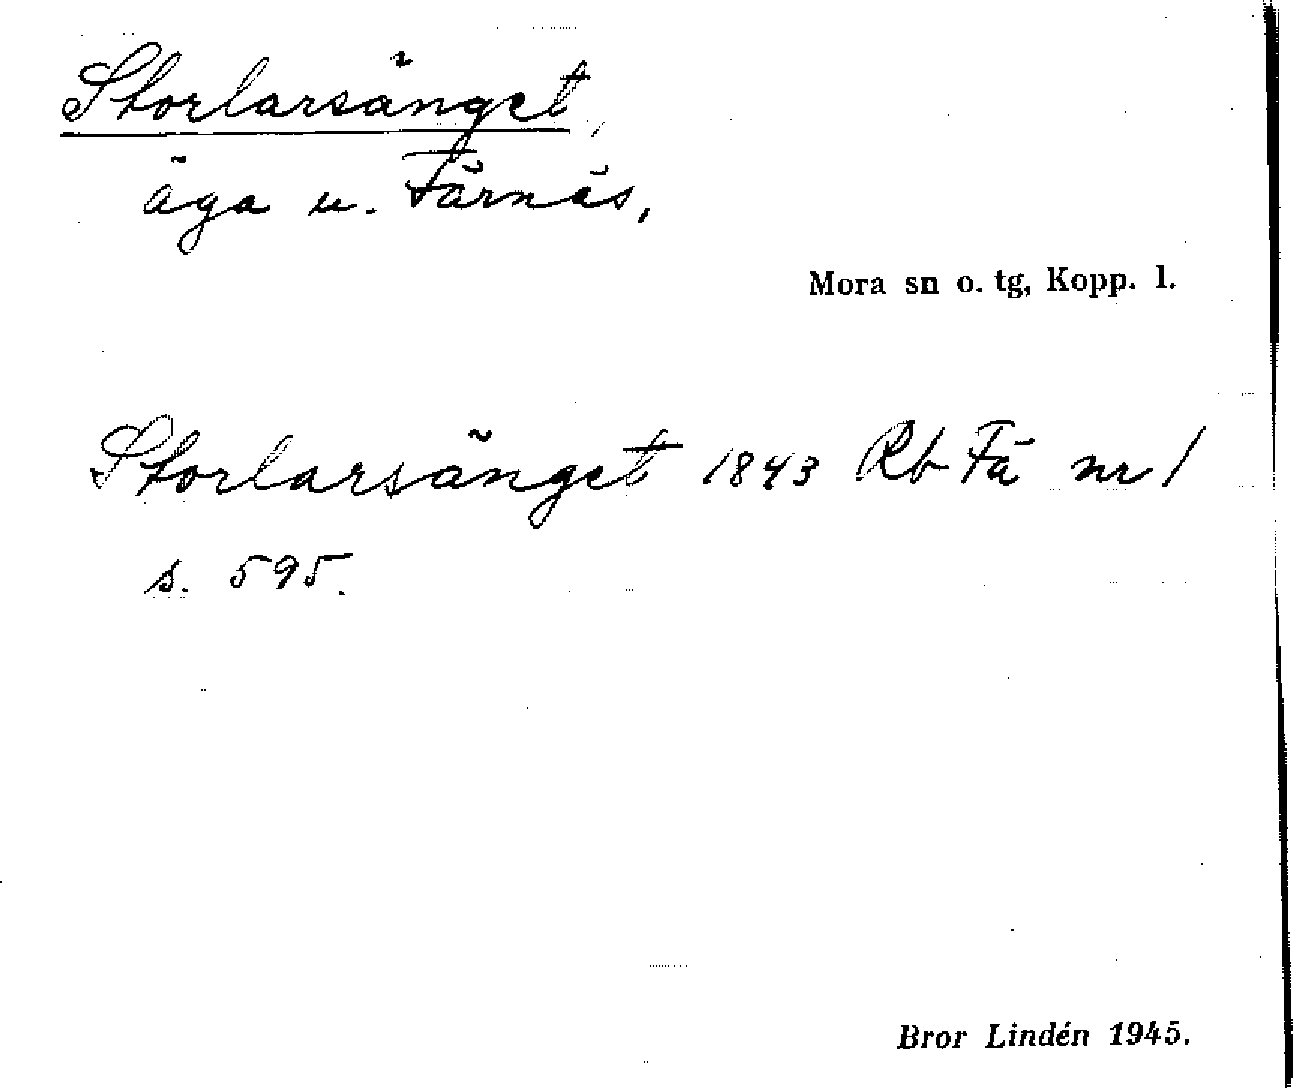 Storlarsänget,
äga u. Färnäs,
Mora sn o. tg, Kopp. l.
Storlarsänget 1843 Rb Fä nr 1
s. 595.
Bror Lindén 1945.